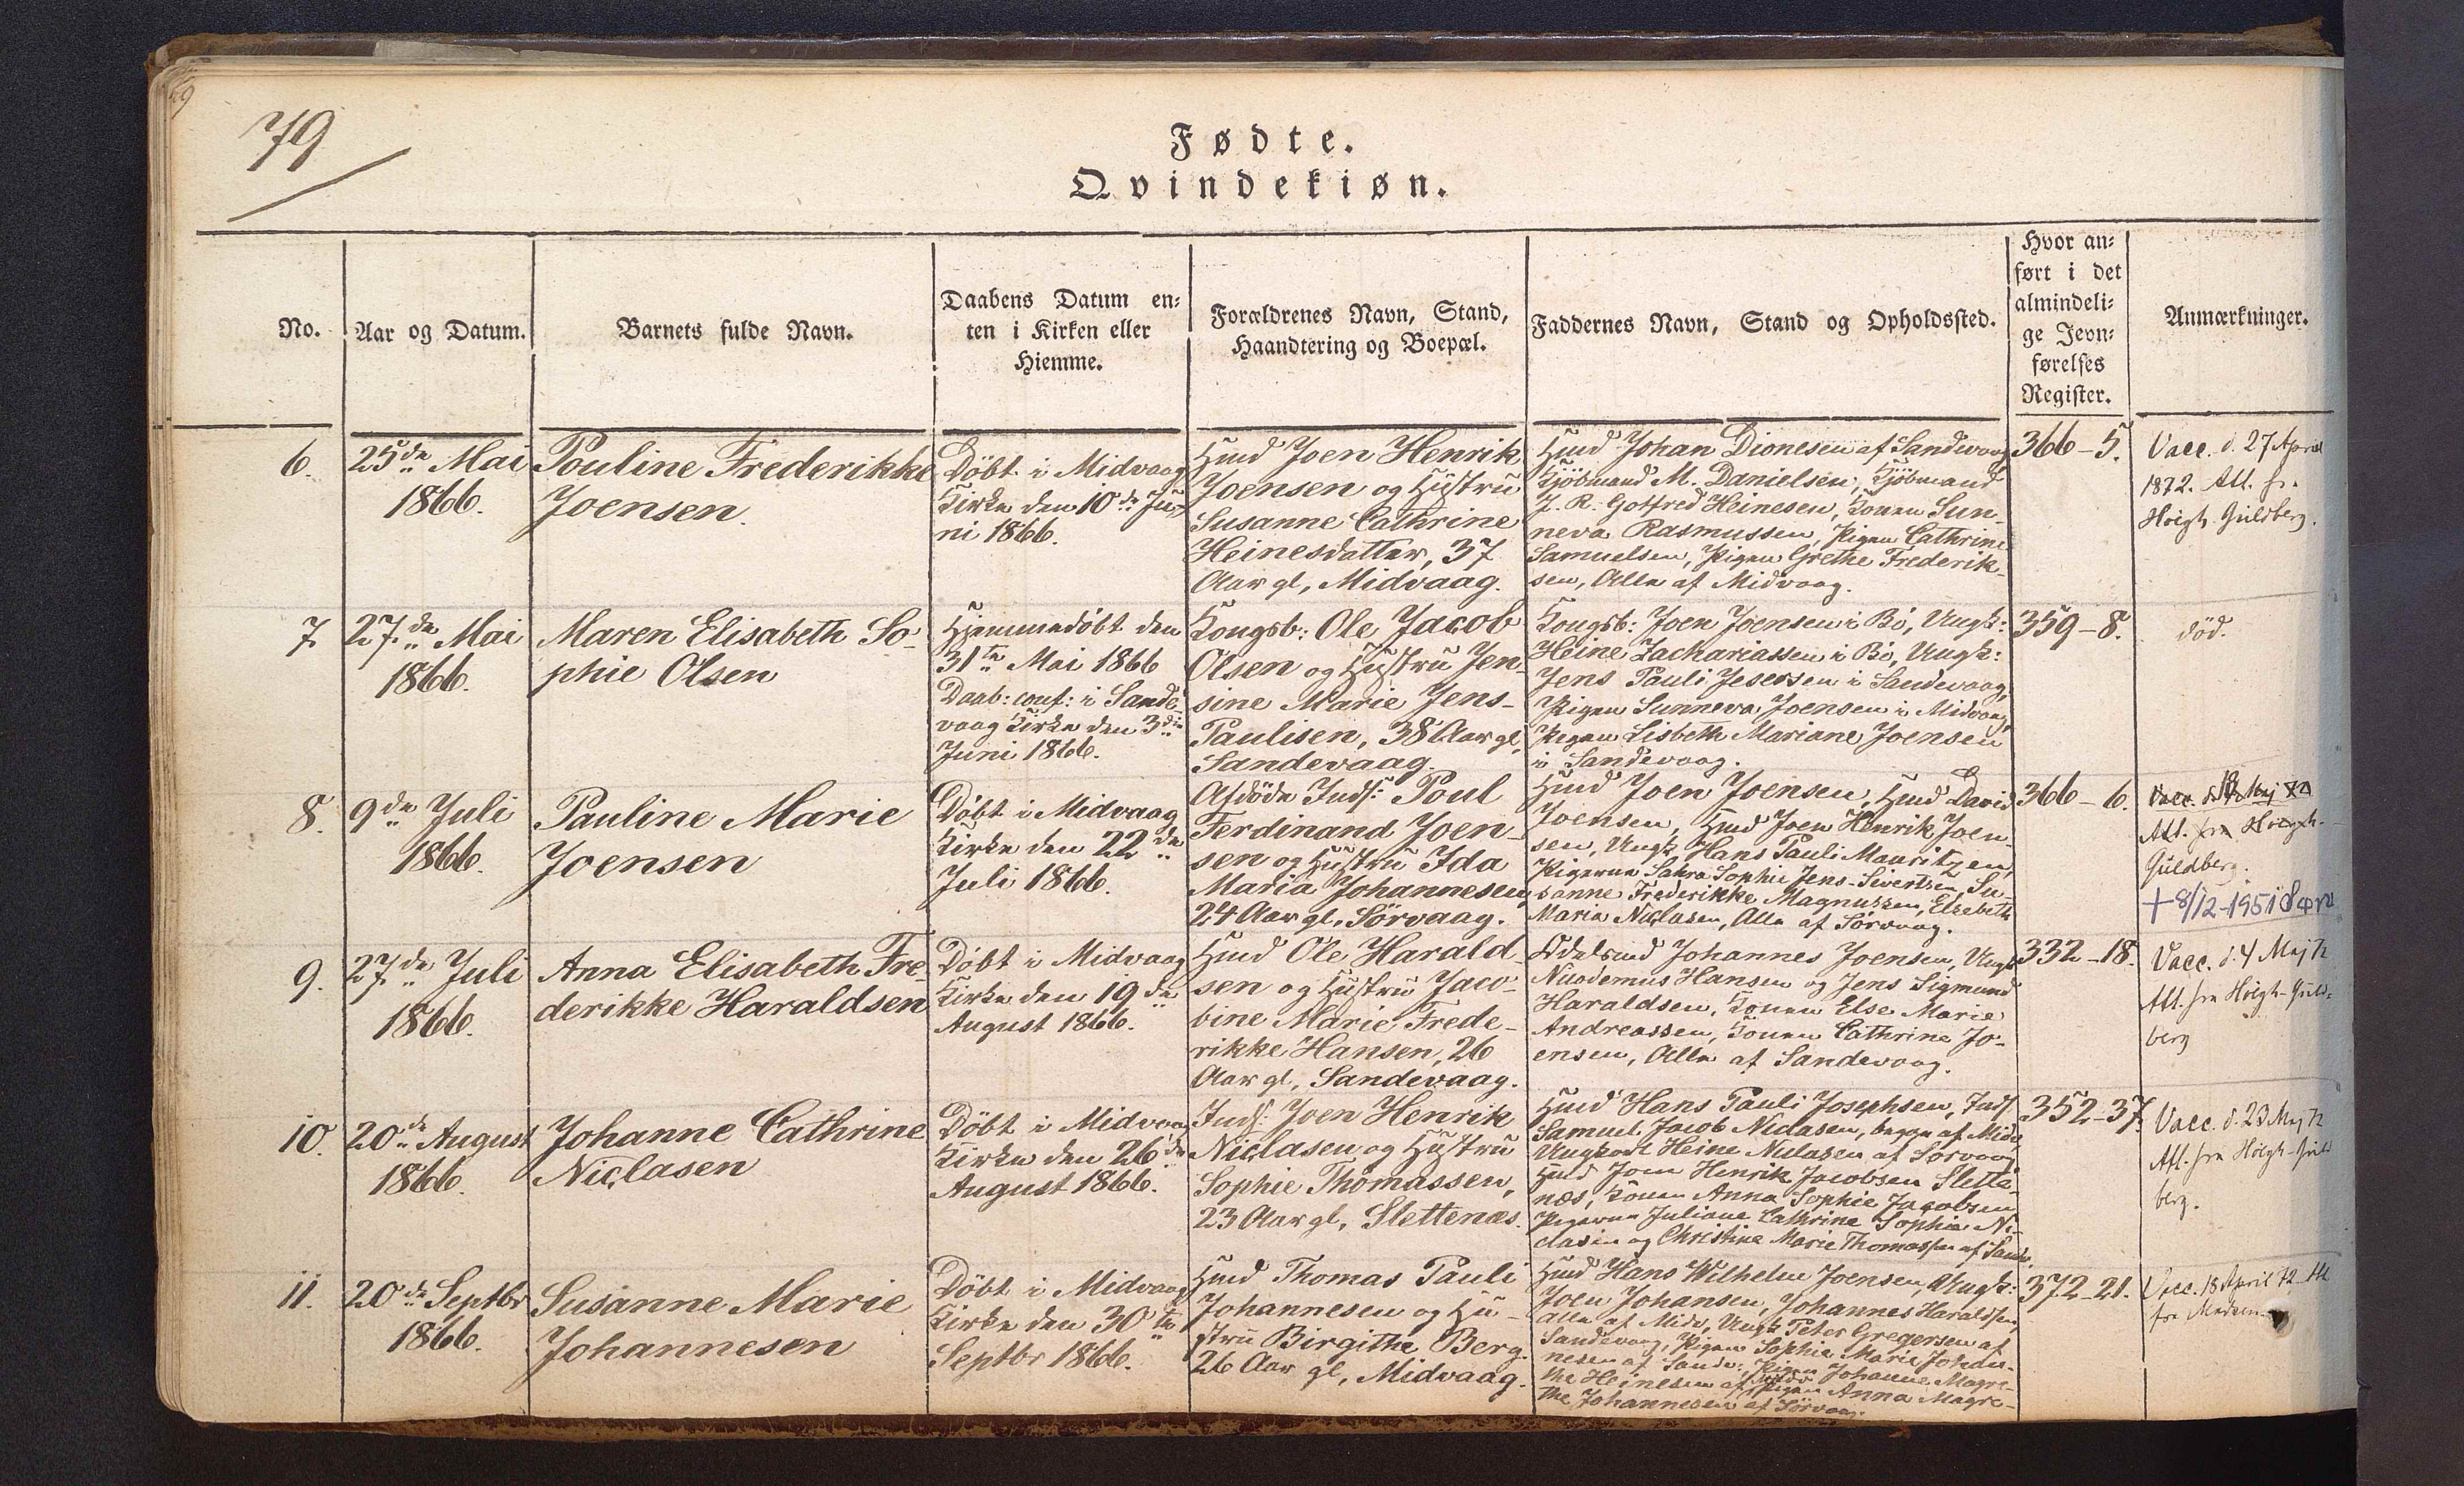 79
Fødte.
Qvindekiøn.
No.
Aar og Datum.
Barnets fulde Navn.
Daabens Datum en-
ten i Kirken eller
Hiemme.
Forældrenes Navn, Stand,
Haandtering og Boepæl.
Faddernes Navn, Stand og Opholdssted.
Hvor an-
ført i det
almindeli-
ge Jevn-
førelses
Register.
Anmærkninger.
6.
25de Mai
1866.
Pouline Frederikke
Joensen.
Döbt i Midvaag
Kirke den 10de Ju-
ni 1866.
Huusmd Joen Henrik
Joensen og Hustru
Susanne Cathrine
Heinesdatter, 37
Aar gl, Midvaag.
Johan Dionesen af Sandevaag
Kjöbmand M. Danielsen, Kjöbmand
J. R. Gotfred Heinesen, Konen Sun-
neva Rasmussen, Pigen Cathrine
Samuelsen, Pigen Grethe Frederik-
sen, Alle af Midvaag.
366-5.
Vacc. d. 27 April
1872. Att. fra
Höigh-Guldberg.
7.
27de Mai
1866.
Maren Elisabeth So-
phie Olsen
Hjemmedöbt den
31te Mai 1866
Daab: conf: i Sande-
vaag Kirke den 3die
Juni 1866.
Kongsb: Ole Jacob
Olsen og Hustru Jen-
sine Marie Jens-
Paulisen, 38 Aar gl,
Sandevaag.
Kongsb: Joen Joensen i Bö, Ungk:
Heine Zachariassen i Bö, Ungk:
Jens Pauli Jesersen i Sandevaag,
Pigen Sunneva Joensen i Midvaag,
Pigen Lisbeth Mariane Joensen
i Sandevaag.
359-8.
död.
8.
9de Juli
1866.
Pauline Marie
Joensen
Döbt i Midvaag
Kirke den 22de
Juli 1866.
Afdöde Inds: Poul
Ferdinand Joen-
sen og Hustru Ida
Maria Johannesen,
24 Aar gl, Sörvaag.
Joen Joensen, David
Joensen, Joen Henrik Joen-
sen, Ungk Hans Pauli Mauritzen,
Pigerne Sahra Sophie Jens-Sivertsen, Su-
sanne Frederikke Magnussen, Elsebeth
Maria Niclasen, Alle af Sörvaag.
366-6.
Vacc. d. Maj 72
Att. fra Höigh-
Guldberg.
+ 8/12-1951
9.
27de Juli
1866.
Anna Elisabeth Fre-
derikke Haraldsen
Döbt i Midvaag
Kirke den 19de
August 1866.
Huusmd Ole Harald-
sen og Hustru Jaco-
bine Marie Frede-
rikke Hansen, 26
Aar gl, Sandevaag.
Odelsmd Johannes Joensen, Ungk
Nicodemus Hansen og Jens Sigmund
Haraldsen, Konen Else Marie
Andreassen, Konen Cathrine Jo-
ensen, Alle af Sandevaag.
332-18.
Vacc. d. 4 Maj 72
Att. fra Höigh-Guld-
berg
10.
20de August
1866.
Johanne Cathrine
Niclasen
Döbt i Midvaag
Kirke den 26de
August 1866.
Inds: Joen Henrik
Niclasen og Hustru
Sophie Thomassen,
23 Aar gl, Slettenæs.
Hans Pauli Josephsen, Inds
Samuel Jacob Niclasen, begge af Midv,
Heine Niclasen af Sörvaag
Joen Henrik Jacobsen Slette-
næs, Konen Anna Sophie Jacobsen
Pigerne Juliane Cathrine Sophie Ni-
clasen og Christine Marie Thomassen af Sandv.
352-37.
Vacc. d. 23 Maj 72
Att. fra Höigh-Guld
berg.
11.
20de Septbr
1866.
Susanne Marie
Johannesen
Döbt i Midvaag
Kirke den 30te
Septbr 1866.
Huusmd Thomas Pauli
Johannesen og Hu-
stru Birgithe Berg.
26 Aar gl, Midvaag.
Hans Wilhelm Joensen, Ungk:
Joen Johansen, Johannes Haraldsen,
alle af Midv, Ungk Peter Gregersen af
Sandevaag, Pigen Sophie Marie Johan-
nesen af Sandv: Pigen Johanne Magre-
the Heinesen af Midv Pigen Anna Magre-
the Johannesen af Sörvaag.
372-21.
Vacc. 18 April 72 Att
fra Madsen